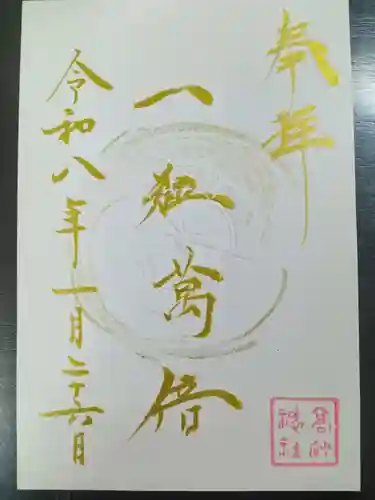 奉拝
一粒萬倍
令和八年一月二十六日
高砂
神社